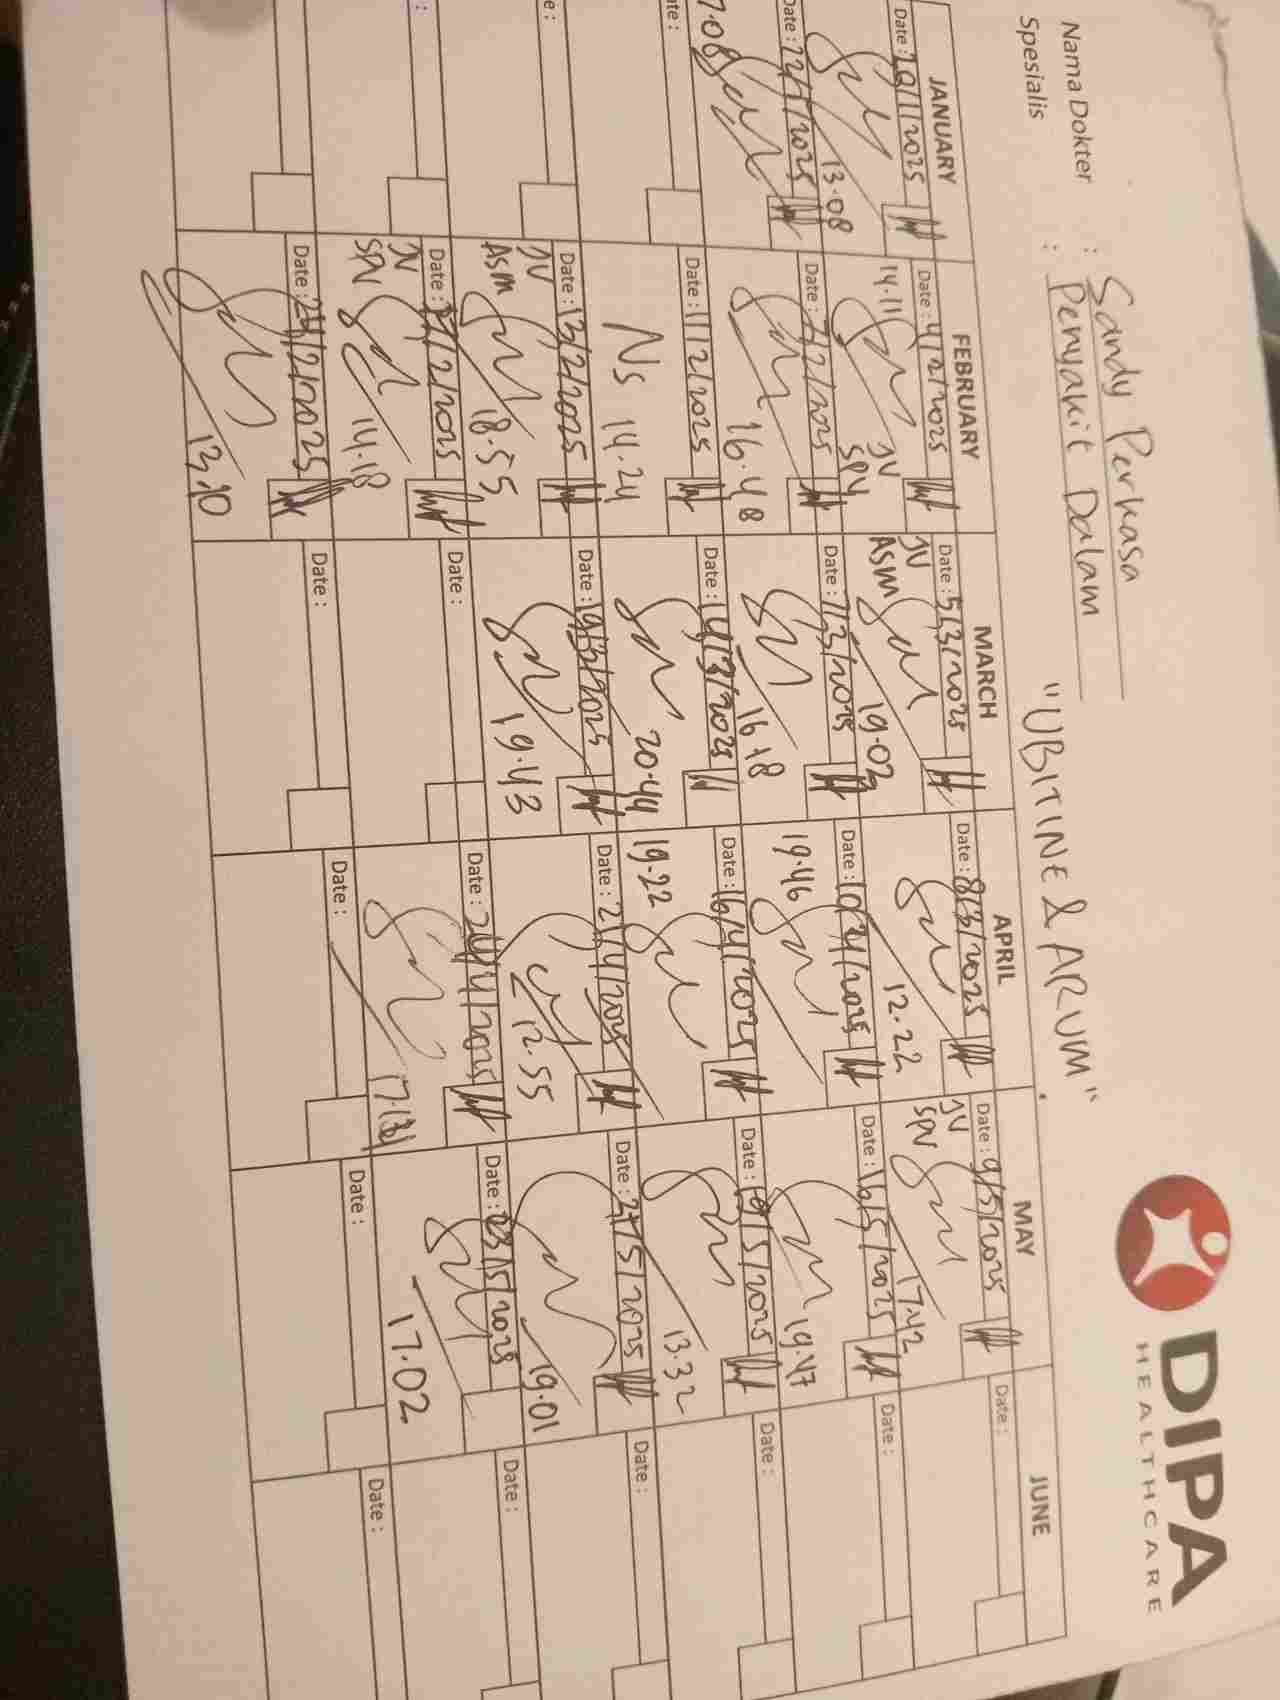 DIPA
HEALTHCARE
Nama Dokter : Sandy Perkasa
Spesialis : Penyakit Dalam
"UBITINE & ARUM"
JANUARY FEBRUARY MARCH APRIL MAY JUNE
Date : 20/1/2025
13.08
Date : 22/1/2025
7.08
ate :
e :
:
Date : 4/2/2025
14.11
JV
SPV
Date : 7/2/2025
16.48
Date : 11/2/2025
Ns 14.24
Date : 13/2/2025
JV
ASM
18.55
Date : /2/2025
JV
SPV
14.18
Date : /2/2025
13.10
Date : 5/3/2025
JV
ASM
19.02
Date : 7/3/2025
16.18
Date : 14/3/2025
20.44
Date : 19/3/2025
19.43
Date :
Date :
Date : 8/3/2025
12.22
Date : 10/4/2025
19.46
Date : 16/4/2025
19.22
Date : 21/4/2025
12.55
Date : 24/4/2025
Date :
Date : 9/5/2025
JV
SPV
17.42
Date : 16/5/2025
19.47
Date : 19/5/2025
13.32
Date : /5/2025
19.01
Date : /5/2025
17.02
Date :
Date :
Date :
Date :
Date :
Date :
Date :